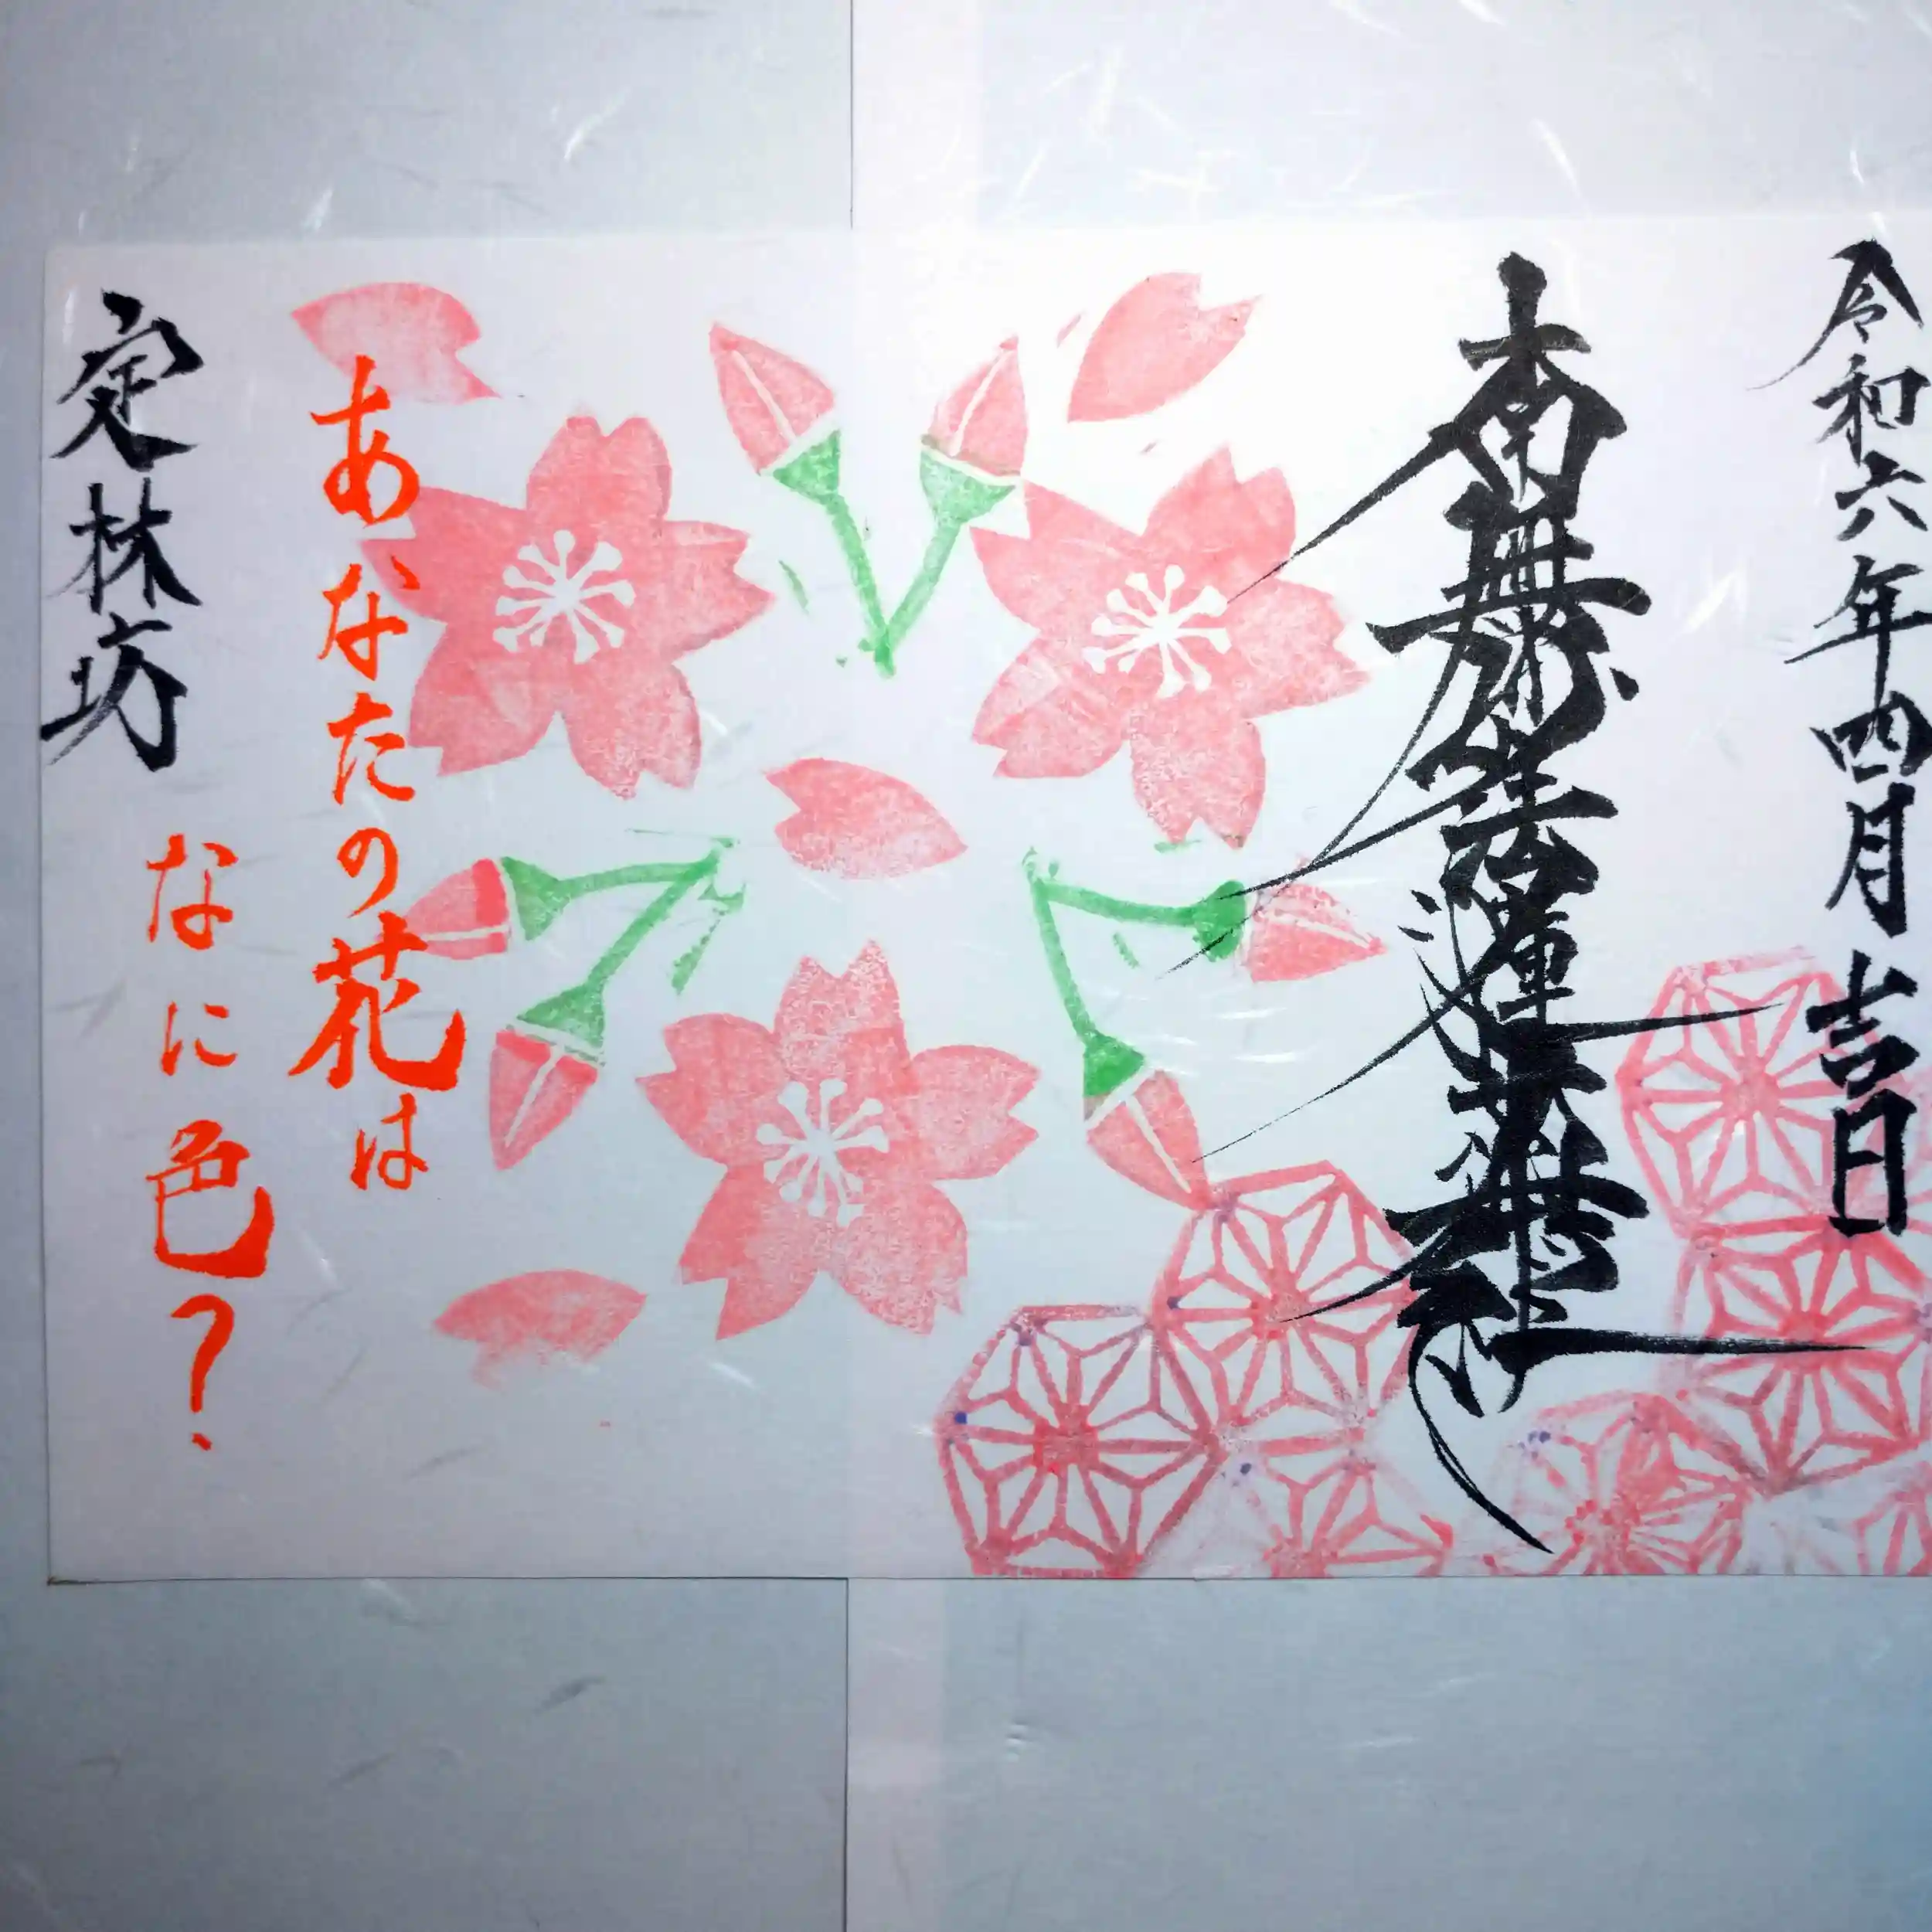 令和六年四月吉日
南無妙法蓮華経
あなたの花は
なに色?
定林坊